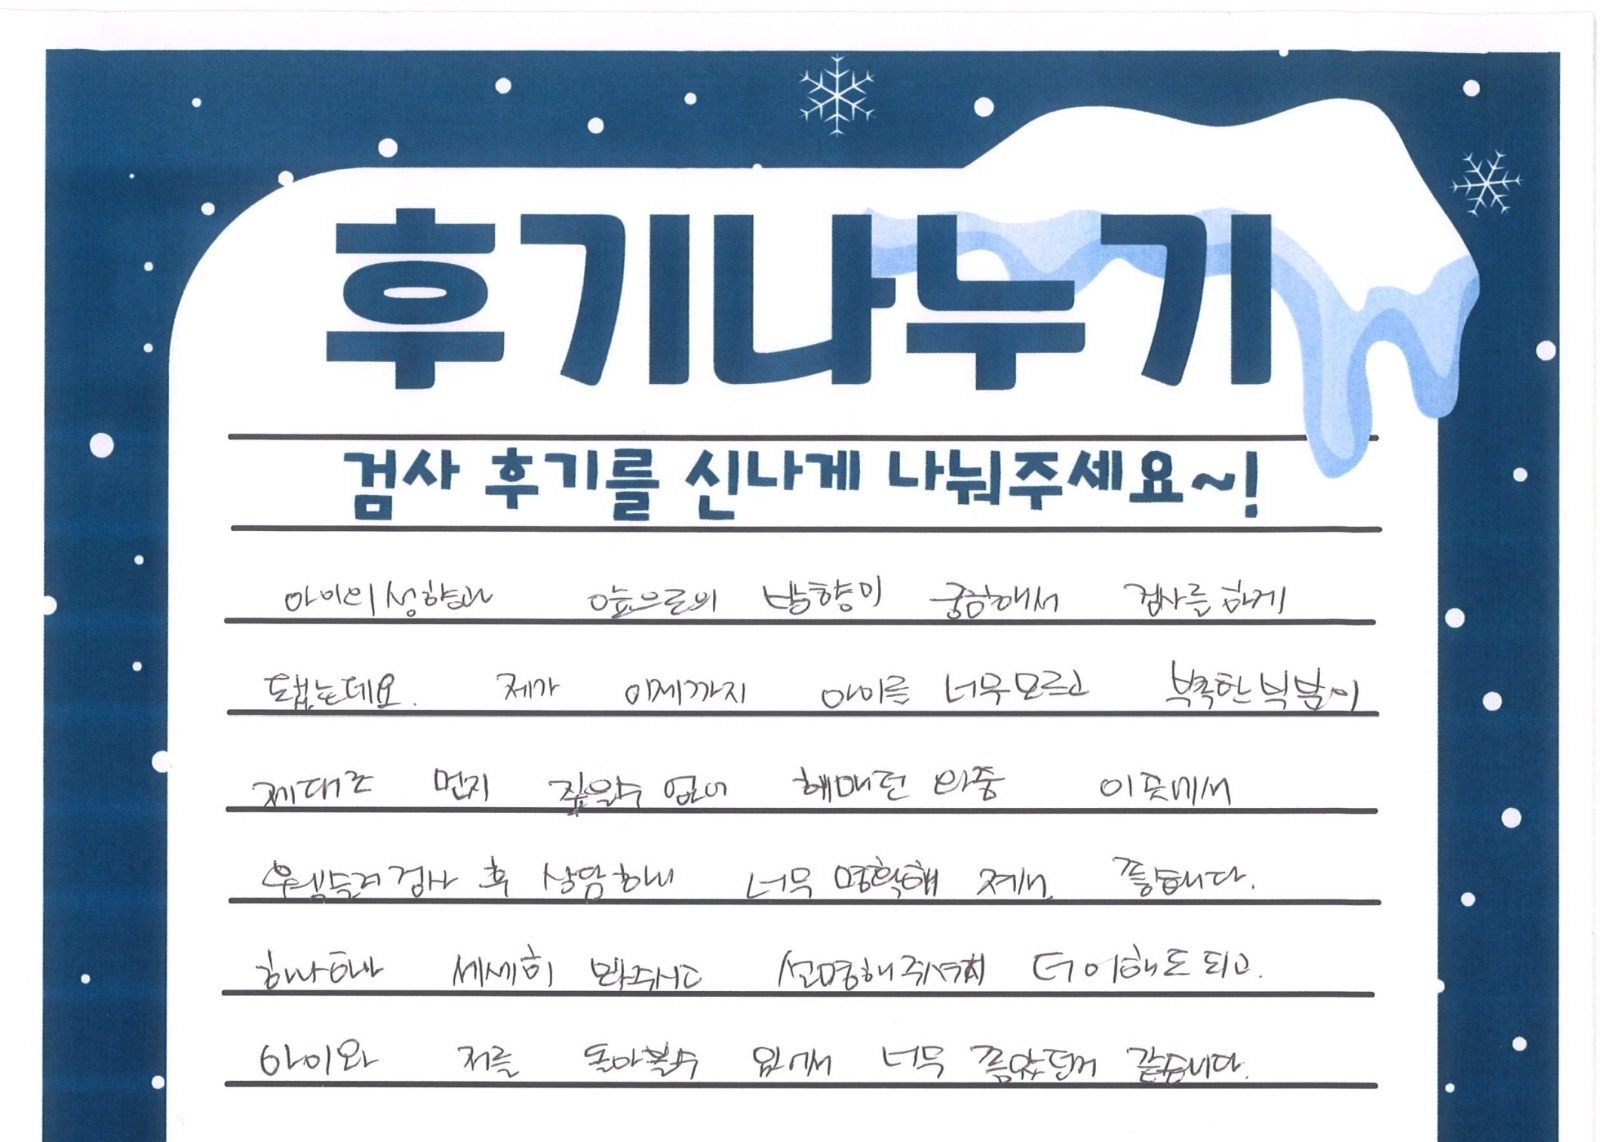 후기나누기
검사 후기를 신나게 나눠주세요~!
아이의 성향과 앞으로의 방향이 궁금해서 검사를 하게
됐는데요. 제가 이제까지 아이를 너무 모르고 부족한 부분이
제대로 먼지 짚을수 없어 헤매던 와중 이곳에서
검사 후 상담하니 너무 명확해 좋습니다.
하나하나 세세히 봐주시고 설명해주셔서 더 이해도 되고.
아이와 저를 돌아볼수 있어서 너무 좋았던거 같습니다.